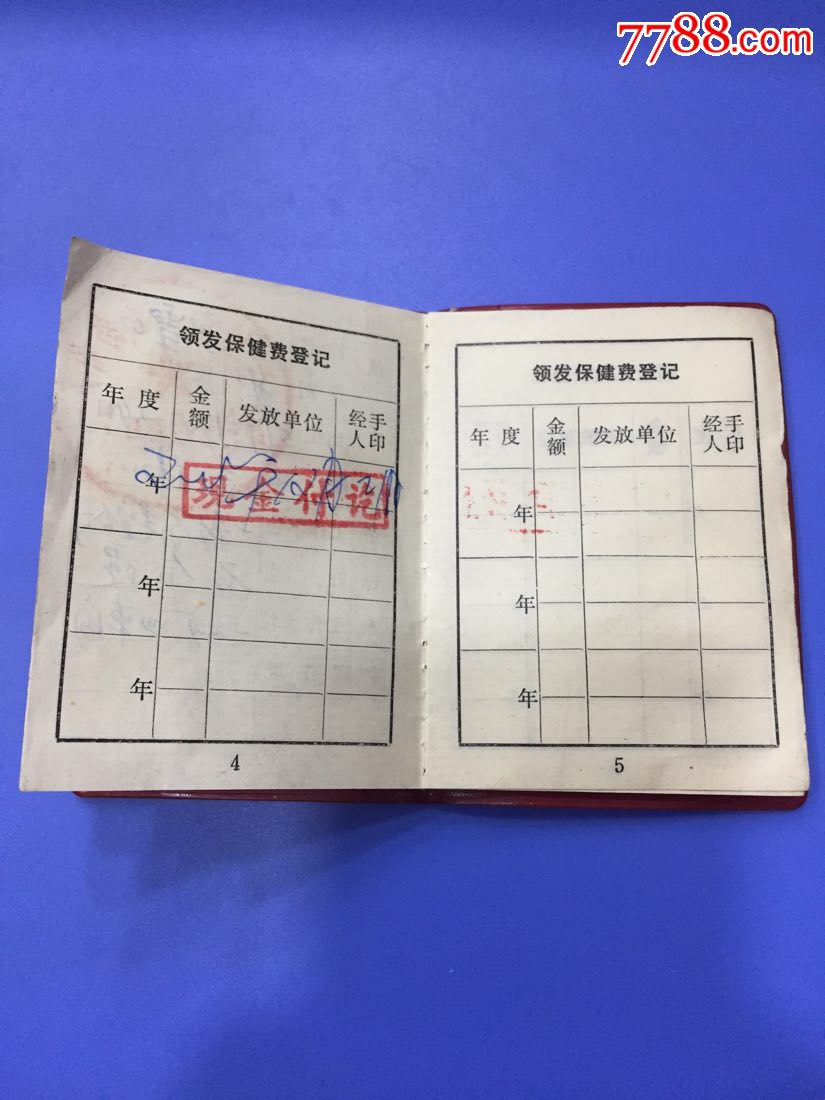 7788.com
领发保健费登记
年度 金额 发放单位 经手人印
年
现金付讫
年
年
4
领发保健费登记
年度 金额 发放单位 经手人印
年
年
年
5